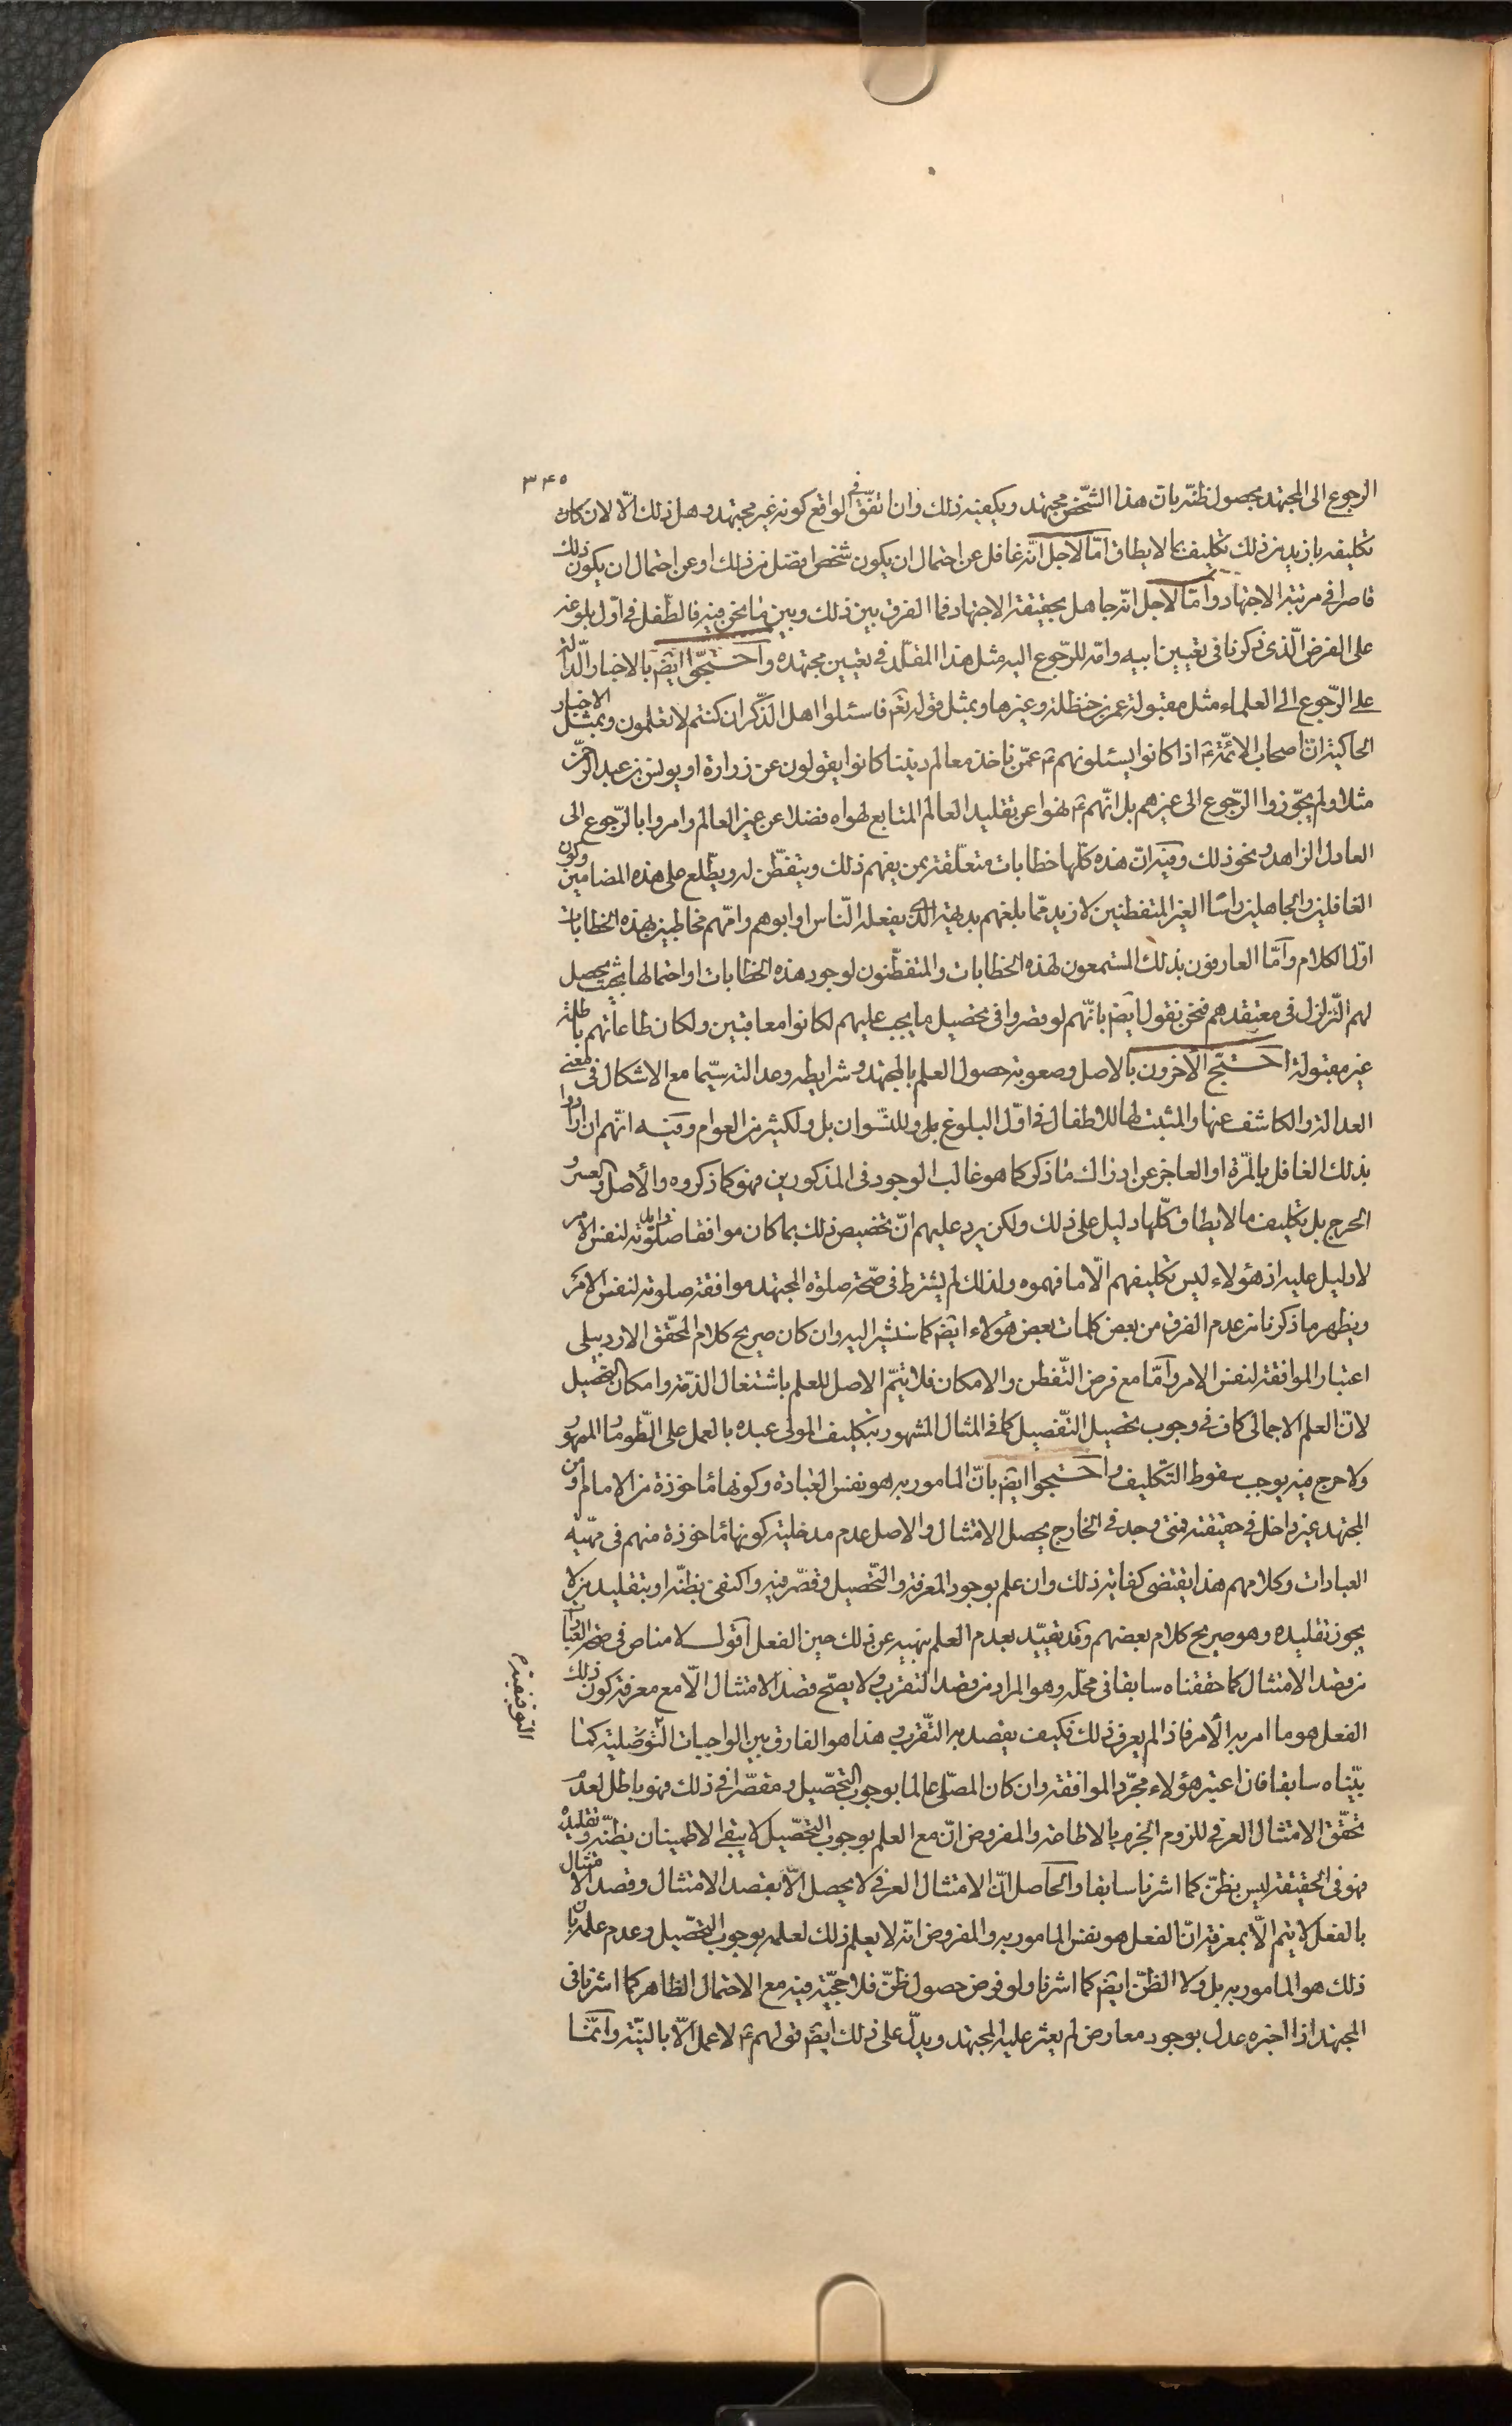 ٣٤٥
الرجوع الى المجتهد بحصول ظنّه بان هذا الشّخص مجتهد ويكفيه ذلك وان اتفّق فى الواقع كونه غير مجتهد وهل ذلك الّا لان كان
تكليفه بازيد من ذلك تكليف بما لا يطاق امّا لاجل انّه غافل عن احتمال ان يكون شخص افضل من ذلك او عن احتمال ان يكون ذلك
قاصرا فى مرتبة الاجتهاد وامّا لاجل انّه جاهل بحقيقة الاجتهاد فما الفرق بين ذلك وبين ما نحن فيه فالطّفل فى اوّل بلوغه
على الفرض الّذى ذكرنا فى تعيين ابيه وامّه للرّجوع اليه مثل هذا المقلّد فى تعيين مجتهده واحتجّوا ايضَ بالاخبار الدّالة
على الرّجوع الى العلماء مثل مقبولة عمر بن حنظلة وغيرها وبمثل قوله تعَم فاسئلوا اهل الذّكر ان كنتم لا تعلمون وبمثل الاخبار
الحاكية انّ اصحاب الائمّة عَ اذا كانوا يسئلونهم عَ عمّن ناخذ معالم ديننا كانوا يقولون عن زرارة او يونس بن عبد الرّحمن
مثلا ولم يجوّزوا الرّجوع الى غيرهم بل انّهم عَ نهوا عن تقليد العالم المتابع لهواه فضلا عن غير العالم وامروا بالرّجوع الى
العادل الزاهد ونحو ذلك وفيه انّ هذه كلّها خطابات متعلّقة بمن يفهم ذلك ويتفطّن له ويطّلع على هذه المضامين وكون
الغافلين والجاهلين راسًا الغير المتفطنين لازيد ممّا بلغهم بديهة الذى يفعله النّاس او ابوهم وامّهم مخاطبين بهذه الخطابات
اوّل الكلام وامّا العارفون بذلك المستمعون لهذه الخطابات والمتفطّنون لوجود هذه الخطابات او احتمالها بحيث يحصل
لهم التّزلزل فى معتقدهم فنحن نقول ايضَ بانّهم لو قصروا فى تحصيل ما يجب عليهم لكانوا معاقبين ولكان طاعاتهم باطلة
غير مقبولة احتجّ الآخرون بالاصل وصعوبة حصول العلم بالمجتهد وشرايطه وعدالته سيّما مع الاشكال فى معنى
العدالة والكاشف عنها والمثبت لها للاطفال فى اوّل البلوغ بل وللنّسوان بل ولكثير من العوام وفيه انّهم ان ارادوا
بذلك الغافل بالمرّة او العاجز عن ادراك ما ذكر كما هو غالب الوجود فى المذكورين فهو كما ذكروه والاصل والعسر و
الحرج بل تكليف ما لا يطاق كلّها دليل على ذلك ولكن يرد عليهم انّ تخصيص ذلك بما كان موافقا صلوته لنفس الامر
لا دليل عليه اذ هؤلاء ليس تكليفهم الّا ما فهموه ولذلك لم يشترط فى صحّة صلوة المجتهد موافقة صلوته لنفس الامر
ويظهر ما ذكرنا من عدم الفرق من بعض كلمات بعض هؤلاء ايضَ كما سنشير اليه وان كان صريح كلام المحقّق الاردبيلى
اعتبار الموافقة لنفس الامر وامّا مع فرض التّفطن والامكان فلا يتمّ الاصل للعلم باشتغال الذّمة وامكان التّحصيل
لانّ العلم الاجمالى كاف فى وجوب تحصيل التّفصيل كما فى المثال المشهور بتكليف المولى عبده بالعمل على الطّومار المهور
ولا حرج فيه يوجب سقوط التكليف واحتجوا ايضَ بانّ المامور به هو نفس العبادة وكونها ماخوذة من الامام او من
المجتهد غير داخل فى حقيقته فمتى وجد فى الخارج يحصل الامتثال والاصل عدم مدخلية كونها ماخوذة منهم فى مهيّة
العبادات وكلامهم هذا يقتضى كفاية ذلك وان علم بوجود المعرفة والتّحصيل وقصّر فيه واكتفى بظنّه او بتقليد من لا
يجوز تقليده وهو صريح كلام بعضهم وقد تقيّد بعدم العلم بنهيه عن ذلك حين الفعل اقول لا مناص فى صحة العبادات
من قصد الامتثال كما حققناه سابقا فى محلّه وهو المراد من قصد التقرب ولا يصحّ قصد الامتثال الّا مع معرفة كون ذلك
الفعل هو ما امر به الآمر فاذا لم يعرف ذلك فكيف يقصد به التّقرب هذا هو الفارق بين الواجبات التّوصّلية كما
بيّناه سابقا فاذا اعتبر هؤلاء مجرّد الموافقة وان كان المصلّى عالما بوجوب التحصّيل ومقصّرا فى ذلك فهو باطل لعدم
تحقّق الامتثال العرفى للزوم الجزم بالاطاعة والمفروض انّ مع العلم بوجوب التحصّيل لا يبقى الاطمينان بظنّه وتقليده
فهو فى الحقيقة ليس بظنّ كما اشرنا سابقا والحاصل انّ الامتثال العرفى لا يحصل الّا بقصد الامتثال وقصد الامتثال
بالفعل لا يتم الّا بمعرفة انّ الفعل هو نفس المامور به والمفروض انّه لا يعلم ذلك لعلمه بوجوب التحصّيل وعدم علمه بان
ذلك هو المامور به بل ولا الظنّ ايضَ كما اشرنا ولو فرض حصول ظنّ فلا حجيّة فيه مع الاحتمال الظاهر كما اشرنا فى
المجتهد اذا اخبره عدل بوجود معارض لم يعثر عليه المجتهد ويدلّ على ذلك ايضَ قولهم عَ لا عمل الّا بالنيّة وانّما